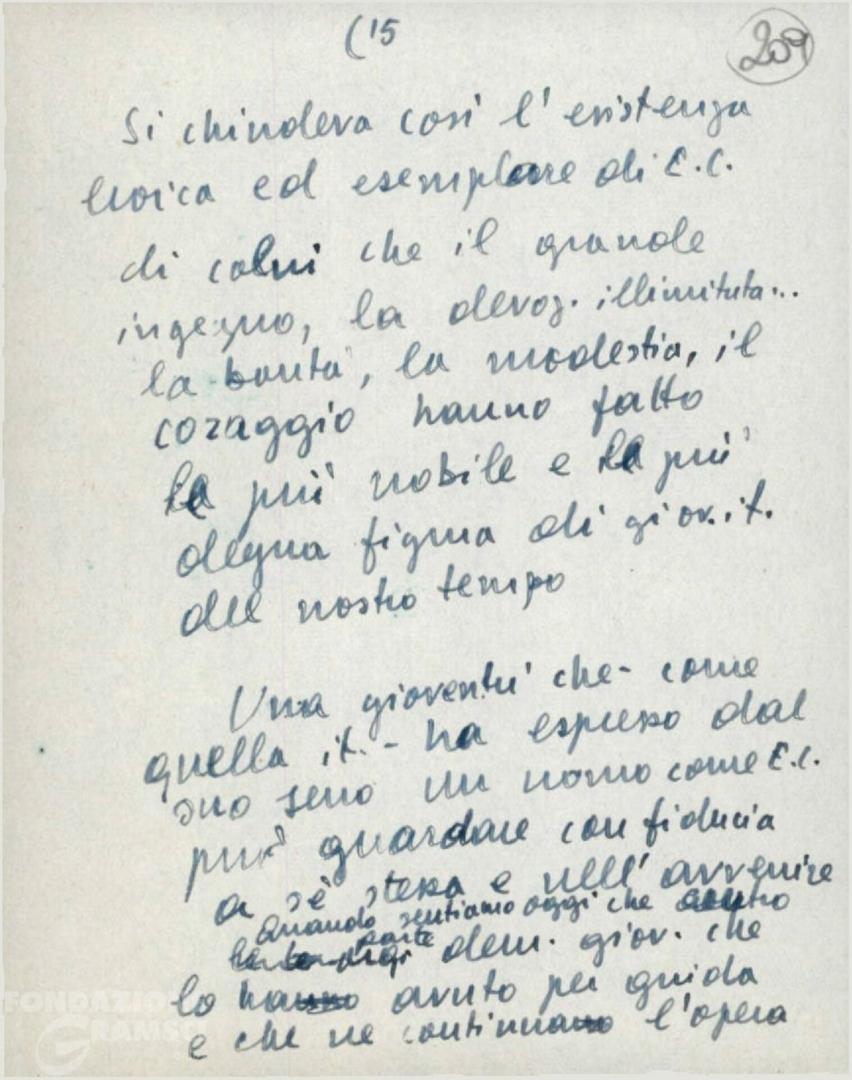 (15
209
Si chiudeva così l'esistenza
eroica ed esemplare di E.C.
di colui che il grande
ingegno, la devoz. illimitata...
la bontà, la modestia, il
coraggio hanno fatto
la più nobile e la più
degna figura di giov. it.
del nostro tempo
Una gioventù che - come
quella it. - ha espresso dal
suo seno un uomo come E.C.
può guardare con fiducia
a sè stessa e nell'avvenire
Quando sentiamo oggi che
parte dem. giov. che
lo avuto per guida
e che ne l'opera
FONDAZIONE
GRAMSCI